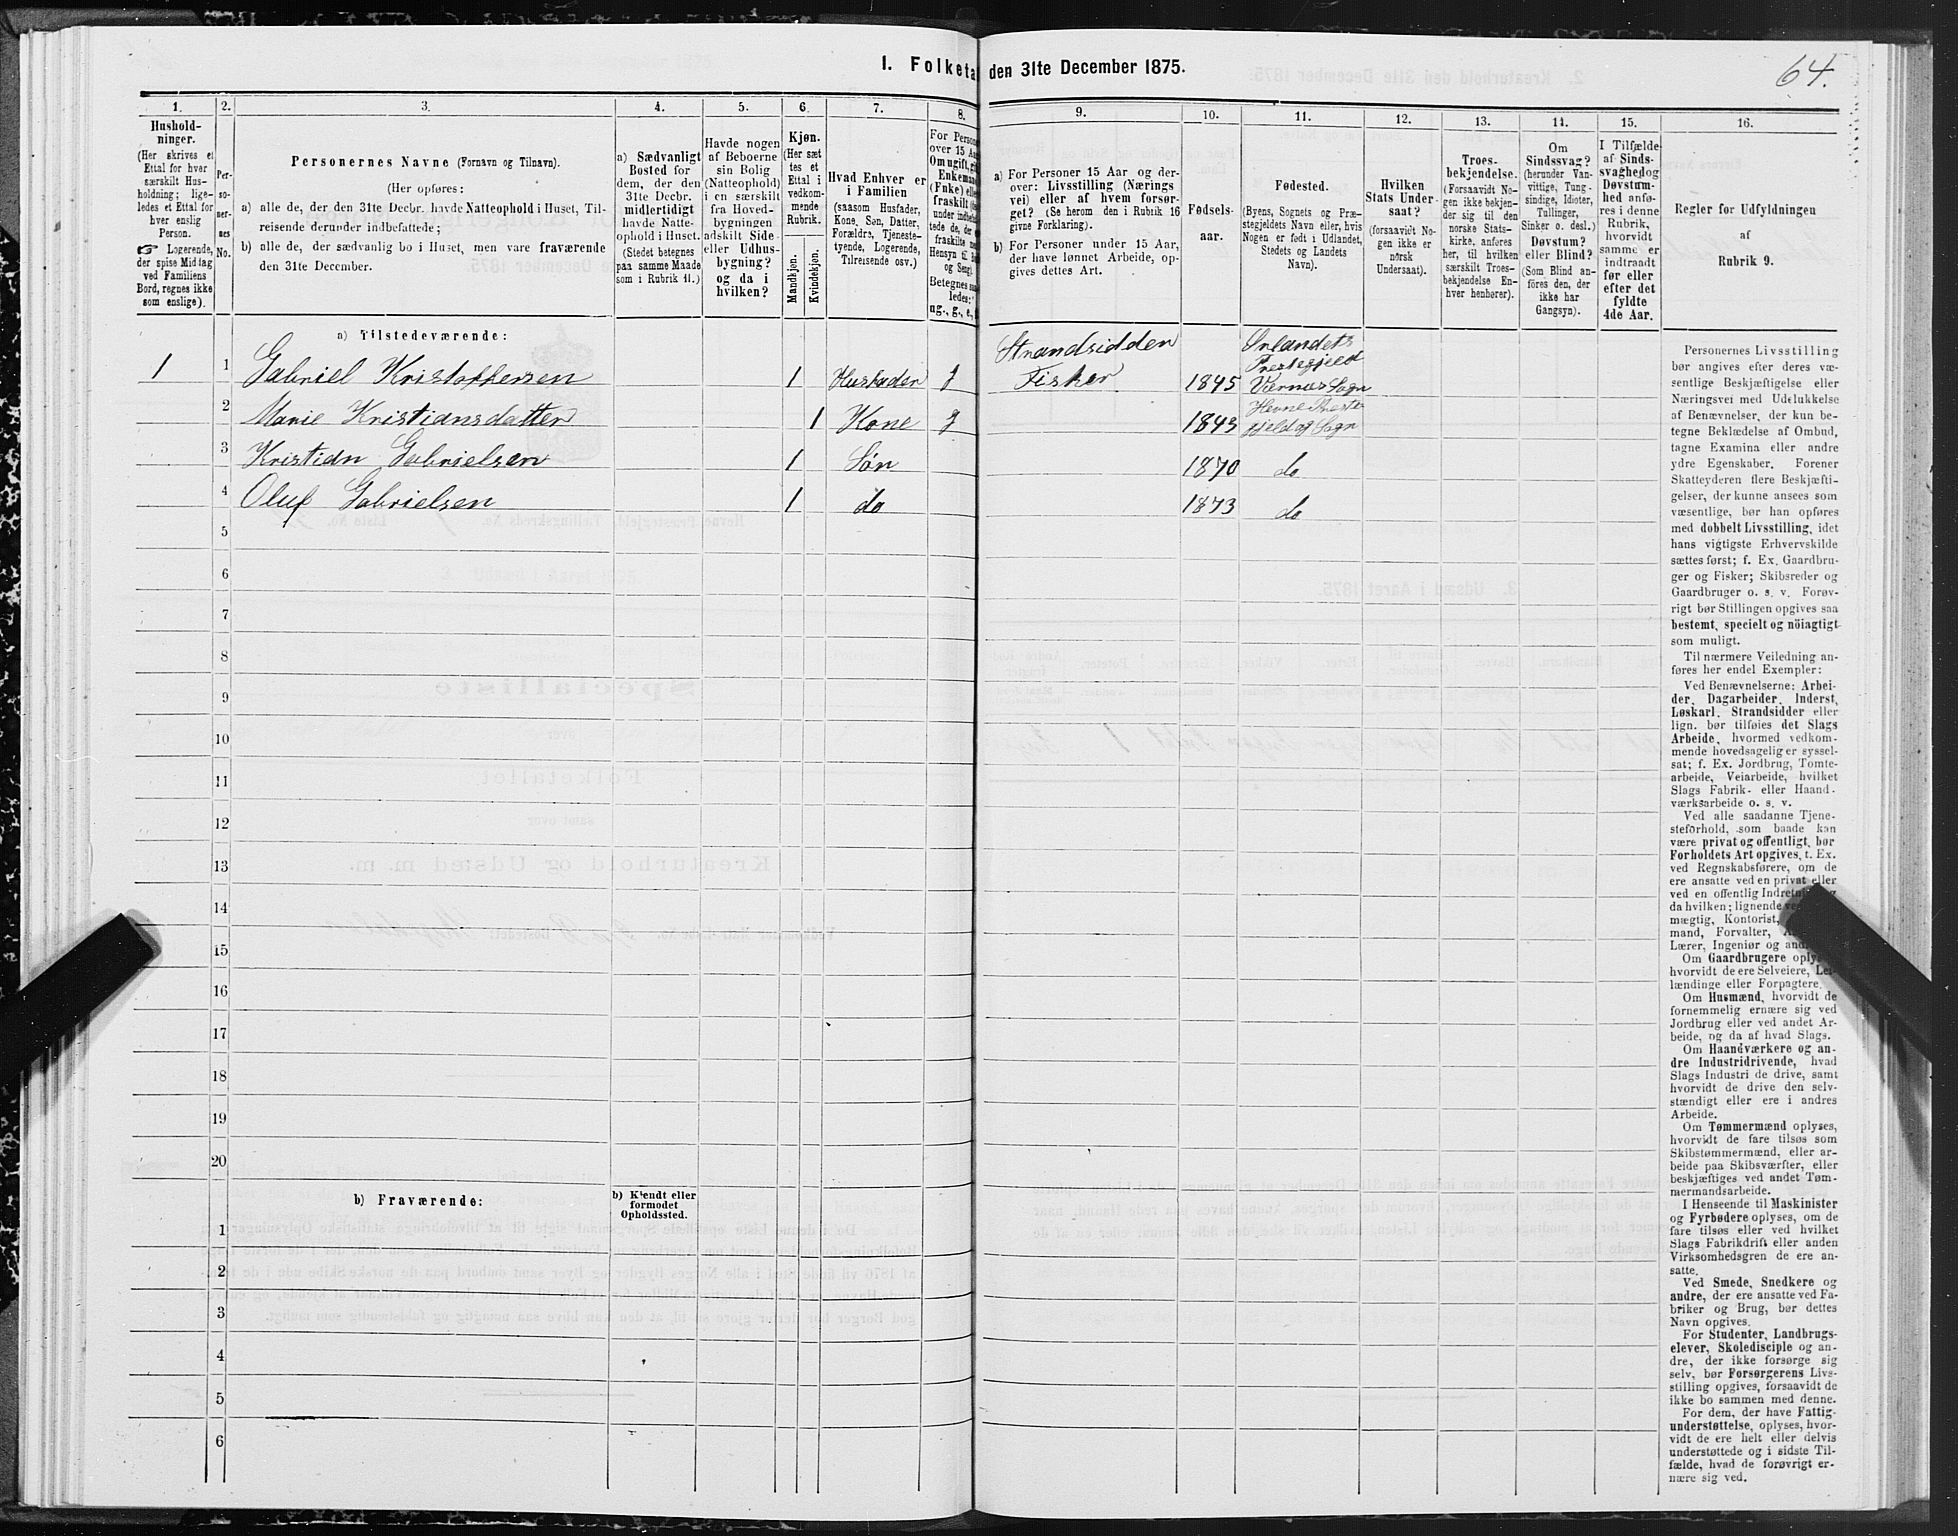 64.
I. Folketa
den 31te December 1875.
1.
2.
3.
4.
5.
6.
7.
8.
9.
10.
11.
12.
13.
14.
15.
16.
Hushold-
ninger.
(Her skrives et
Ettal for hver
særskilt Hus-
holdning; lige-
ledes et Ettal for
hver enslig
Person.
☞ Logerende,
der spise Middag
ved Familiens
Bord, regnes ikke
som enslige).
Per-
so-
ner-
nes
No.
Personernes Navne (Fornavn og Tilnavn).
(Her opføres:
a) alle de, der den 31te Decbr. havde Natteophold i Huset, Til-
reisende derunder indbefattede;
b) alle de, der sædvanlig bo i Huset, men vare fraværende
den 31te December.
a) Sædvanligt
Bosted for
dem, der den
31te Decbr.
midlertidigt
havde Natte-
ophold i Huset.
(Stedet betegnes
paa samme Maade
som i Rubrik 11.)
Havde nogen
af Beboerne
sin Bolig
(Natteophold)
i en særskilt
fra Hoved-
bygningen
adskilt Side-
eller Udhus-
bygning?
og da i
hvilken?
Kjøn.
(Her sæt-
tes et
Ettal i
vedkom-
mende
Rubrik.
Mandkjøn.
Kvindekjøn.
Hvad Enhver er
i Familien
(saasom Husfader,
Kone, Søn, Datter,
Forældre, Tjeneste-
tyende, Logerende,
Tilreisende osv.)
For Person
over 15 Aa
Om ugift, gi
Enkeman
(Fnke) elle
fraskilt
Betegnes
ledes:
ug., g., e.,
a) For Personer 15 Aar og der-
over: Livsstilling (Nærings
vei) eller af hvem forsør-
get? (Se herom den i Rubrik 16
givne Forklaring).
b) For Personer under 15 Aar,
der have lønnet Arbeide, op-
gives dettes Art.
Fødsels-
aar.
Fødested.
(Byens, Sognets og Præ-
stegjeldets Navn eller, hvis
Nogen er født i Udlandet,
Stedets og Landets
Navn).
Hvilken
Stats Under-
saat?
(forsaavidt No-
gen ikke er
norsk
Undersaat).
Troes-
bekjendelse.
(Forsaavidt No-
gen ikke bekjen-
der sig til den
norske Stats-
kirke, anføres
her, til hvilken
særskilt Troes-
bekjendelse En-
hver henhører).
Om
Sindssvag?
(herunder Van-
vittige, Tung-
sindige, Idioter,
Tullinger,
Sinker o. desl.)
Døvstum?
eller Blind?
(Som Blind an-
føres den, der
ikke har
Gangsyn).
I Tilfælde
af Sinds-
svaghed og
Døvstum-
hed anfø-
res i denne
Rubrik,
hvorvidt
samme er
indtraadt
før eller
efter det
fyldte
4de Aar.
Regler for Udfyldningen
af
Rubrik 9.
a) Tilstedeværende:
Strandsidder
Ørlandets
Prestegjeld
1 1 Gabriel Kristoffersen 1 Husfader g Fisker 1845 Værnes Sogn
2 Marie Kristiansdatter 1 Kone g 1843 Hevne Preste
gjeld og Sogn
3 Kristian Gabrielsen 1 Søn 1870 do
4 Oluf Gabrielsen 1 do 1873 do
5
6
7
8
9
10
11
12
13
14
15
16
17
18
19
20
b) Fraværende:
b) Kjendt eller
formodet
Opholdssted.
1
2
3
4
5
6
Personernes Livsstilling
bør angives efter deres væ-
sentlige Beskjæftigelse eller
Næringsvei med Udelukkelse
af Benævnelser, der kun be-
tegne Beklædelse af Ombud,
tagne Examina eller andre
ydre Egenskaber. Forener
Skatteyderen flere Beskjæfti-
gelser, der kunne ansees som
væsentlige, bør han opføres
med dobbelt Livsstilling, idet
hans vigtigste Erhvervskilde
sættes først; f. Ex. Gaardbru-
ger og Fisker; Skibsreder og
Gaardbruger o. s. v. Forøv-
rigt bør Stillingen opgives saa
bestemt, specielt og nöiagtigt
som muligt.
Til nærmere Veiledning an-
føres her endel Exempler:
Ved Benævnelserne: Arbei-
der, Dagarbeider, Inderst,
Løskarl, Strandsidder eller
lign. bør tilføies det Slags
Arbeide, hvormed vedkom-
mende hovedsagelig er syssel-
sat; f. Ex. Jordbrug, Tomte-
arbeide, Veiarbeide, hvilket
Slags Fabrik- eller Haand-
værksarbeide o. s. v.
Ved alle saadanne Tjene-
steforhold, som baade kan
være privat og offentligt, bør
Forholdets Art opgives, t. Ex.
ved Regnskabsførere, om de
ere ansatte ved en privat eller
ved en offentlig Indretning og
da hvilken; lignende ved
mægtig, Kontorist,
mand, Forvalter,
Lærer, Ingeniør og andre
Om Gaardbrugere oplyses
hvorvidt de ere Selveiere, Lei-
lændinge eller Forpagtere.
Om Husmænd, hvorvidt de
fornemmelig ernære sig ved
Jordbrug eller ved andet Ar-
beide, og da af hvad Slags.
Om Haandværkere og an-
dre Industridrivende, hvad
Slags Industri de drive, samt
hvorvidt de drive den selv-
stændigt eller ere i andres
Arbeide.
Om Tømmermænd oplyses,
hvorvidt de fare tilsøs som
Skibstømmermænd, eller ar-
beide paa Skibsværfter, eller
beskjæftiges ved andet Tøm-
mermandsarbeide.
I Henseende til Maskinister
og Fyrbødere oplyses, om de
fare tilsøs eller ved hvilket
Slags Fabrikdrift eller anden
Virksomhedsgren de ere an-
satte.
Ved Smede, Snedkere og
andre, der ere ansatte ved Fa-
briker og Brug, bør dettes
Navn opgives.
For Studenter, Landbrugs-
elever, Skoledisciple og an-
dre, der ikke forsørge sig
selv, bør Forsørgerens Livs-
stilling opgives, forsaavidt de
ikke bo sammen med denne.
For dem, der have Fattig-
understøttelse, oplyses, hvor-
vidt de ere helt eller delvis
understøttede og i sidste Til-
fælde, hvad de forøvrigt er-
nære sig ved.